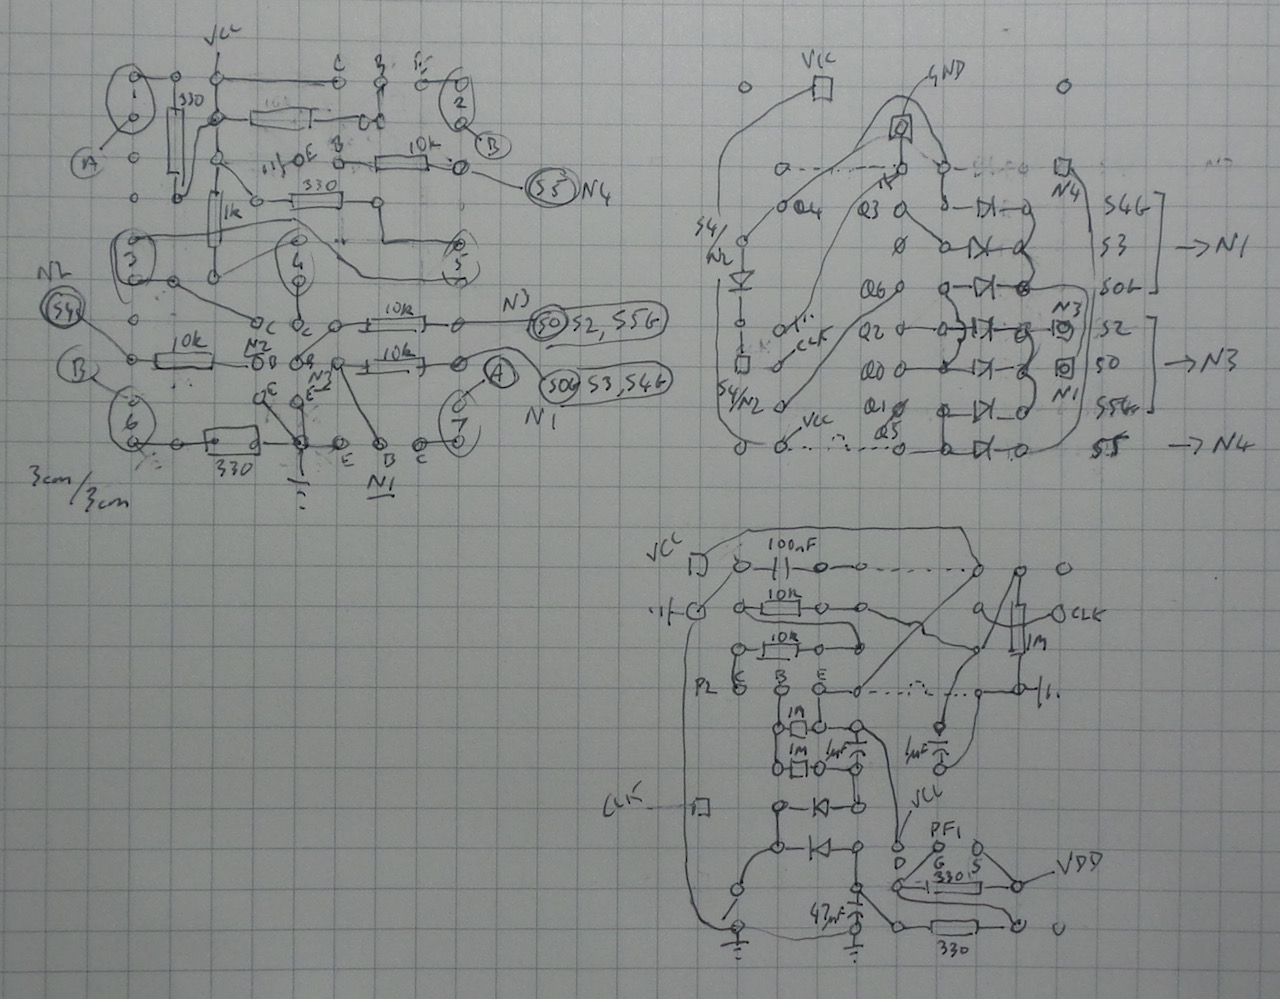 VCC
C B E
1
330
2
A
B
E B 10k
S5 N4
330
1k
3
4
5
N2
S4
C C
10k
N3
S0 S2, S5G
10k
N2
B B
10k
A
S0G S3, S4G
N1
B
E E
6
7
330
E B C
N1
3cm/3cm
VCC
GND
N4
Q4 Q3
S4G
S4/N2
S3 → N1
Q6
S0G
N3
Q2
S2
CLK
Q0
S0 → N3
N1
S4/N2
Q1
S5G
VCC
Q5
S5 → N4
VCC
100nF
10k
CLK
10k
1M
P2
C B E
1M
1M
1µF
1µF
CLK
VCC
PF1
D G S
330
VDD
47µF
330